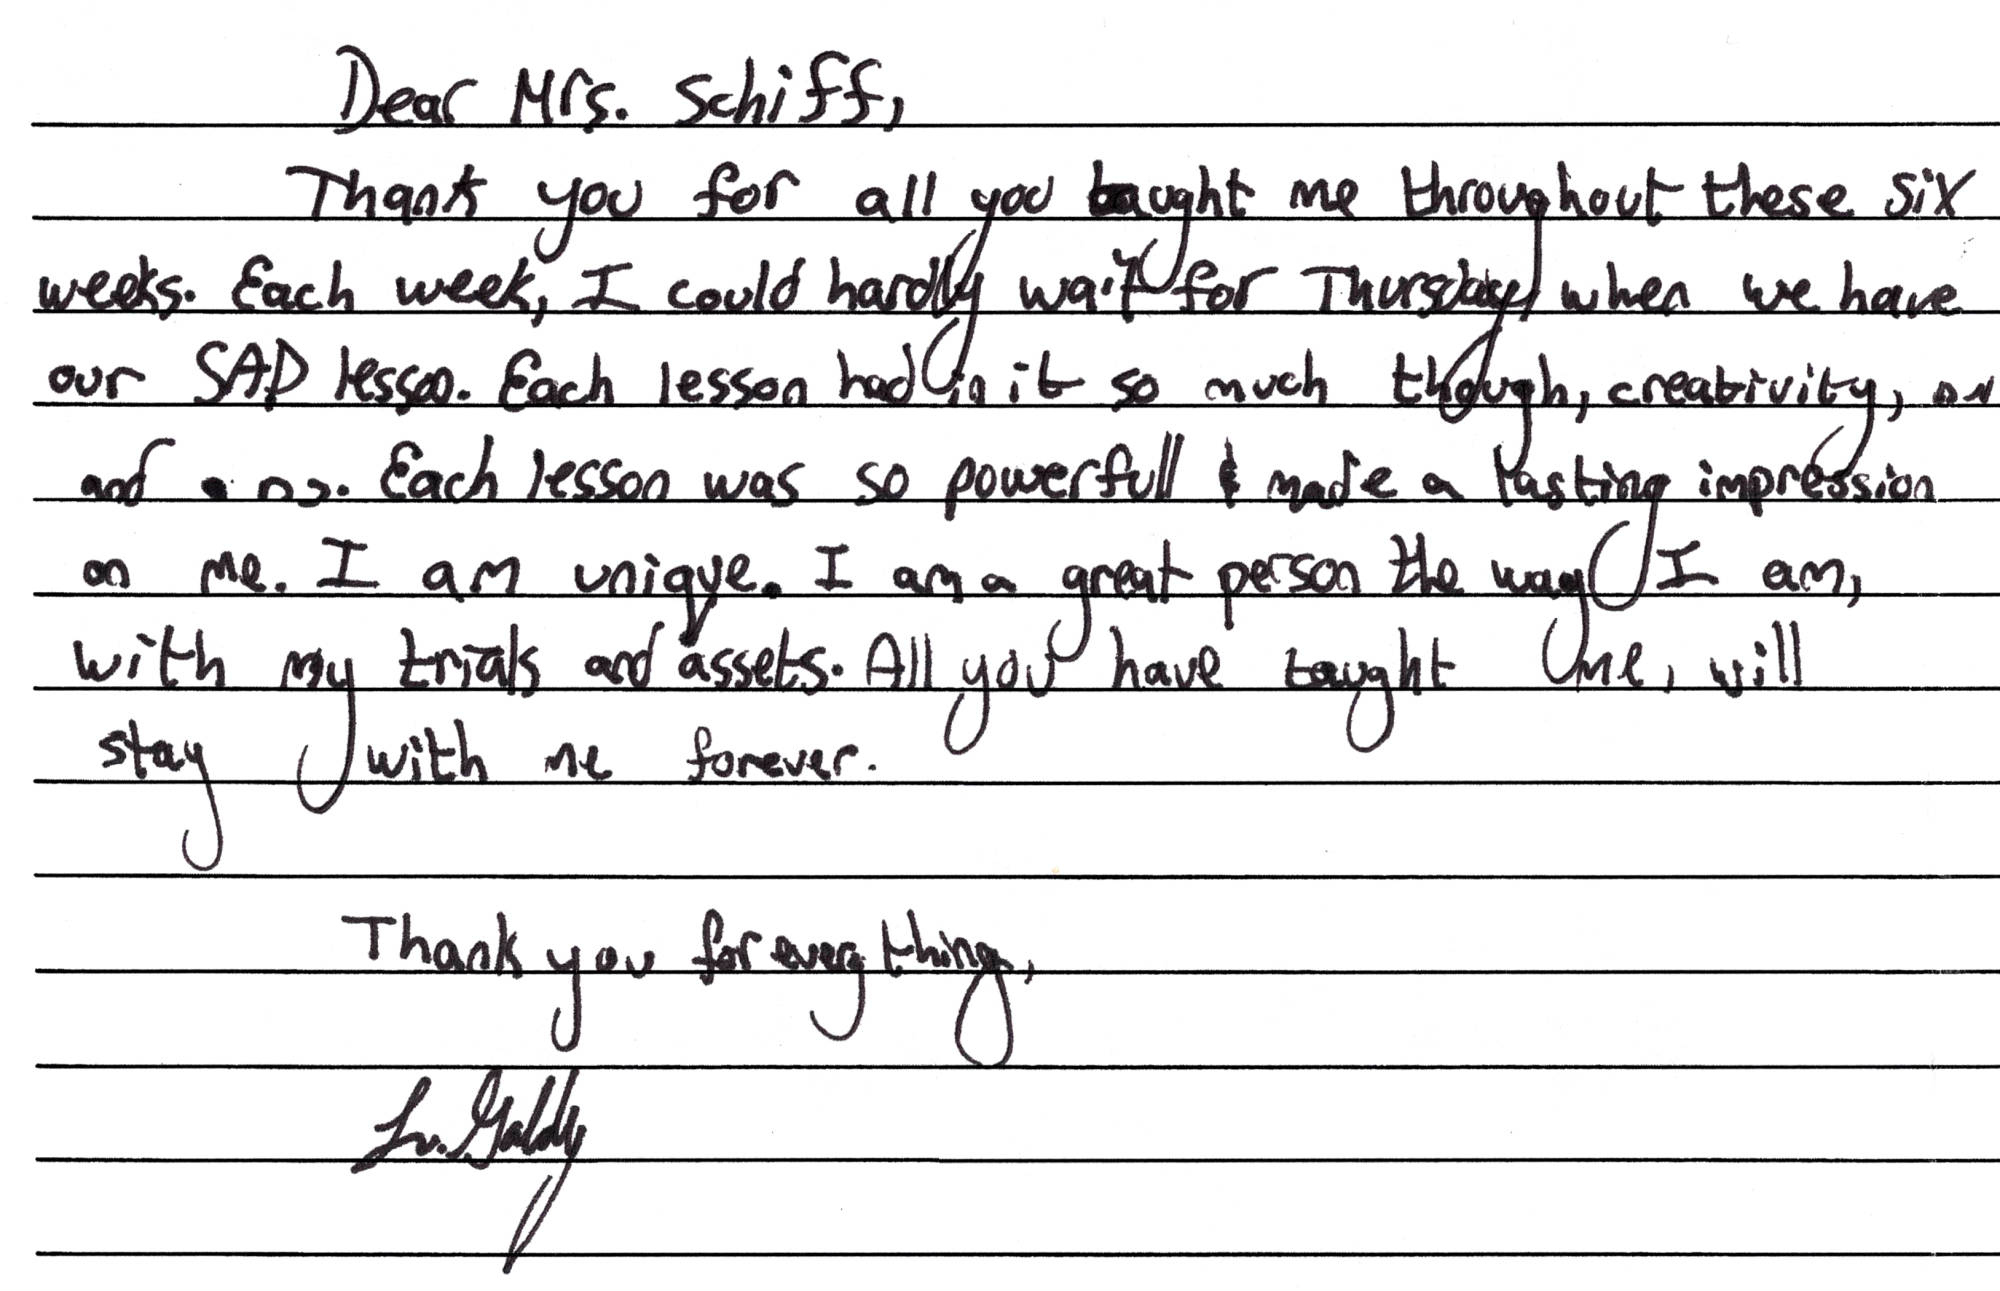 Dear Mrs. Schiff,
Thank you for all you taught me throughout these six
weeks. Each week, I could hardly wait for Thursday, when we have
our SAD lesson. Each lesson had in it so much though, creativity,
and Each lesson was so powerfull & made a lasting impression
on me. I am unique. I am a great person the way I am,
with my trials and assets. All you have taught me, will
stay with me forever.
Thank you for everything,